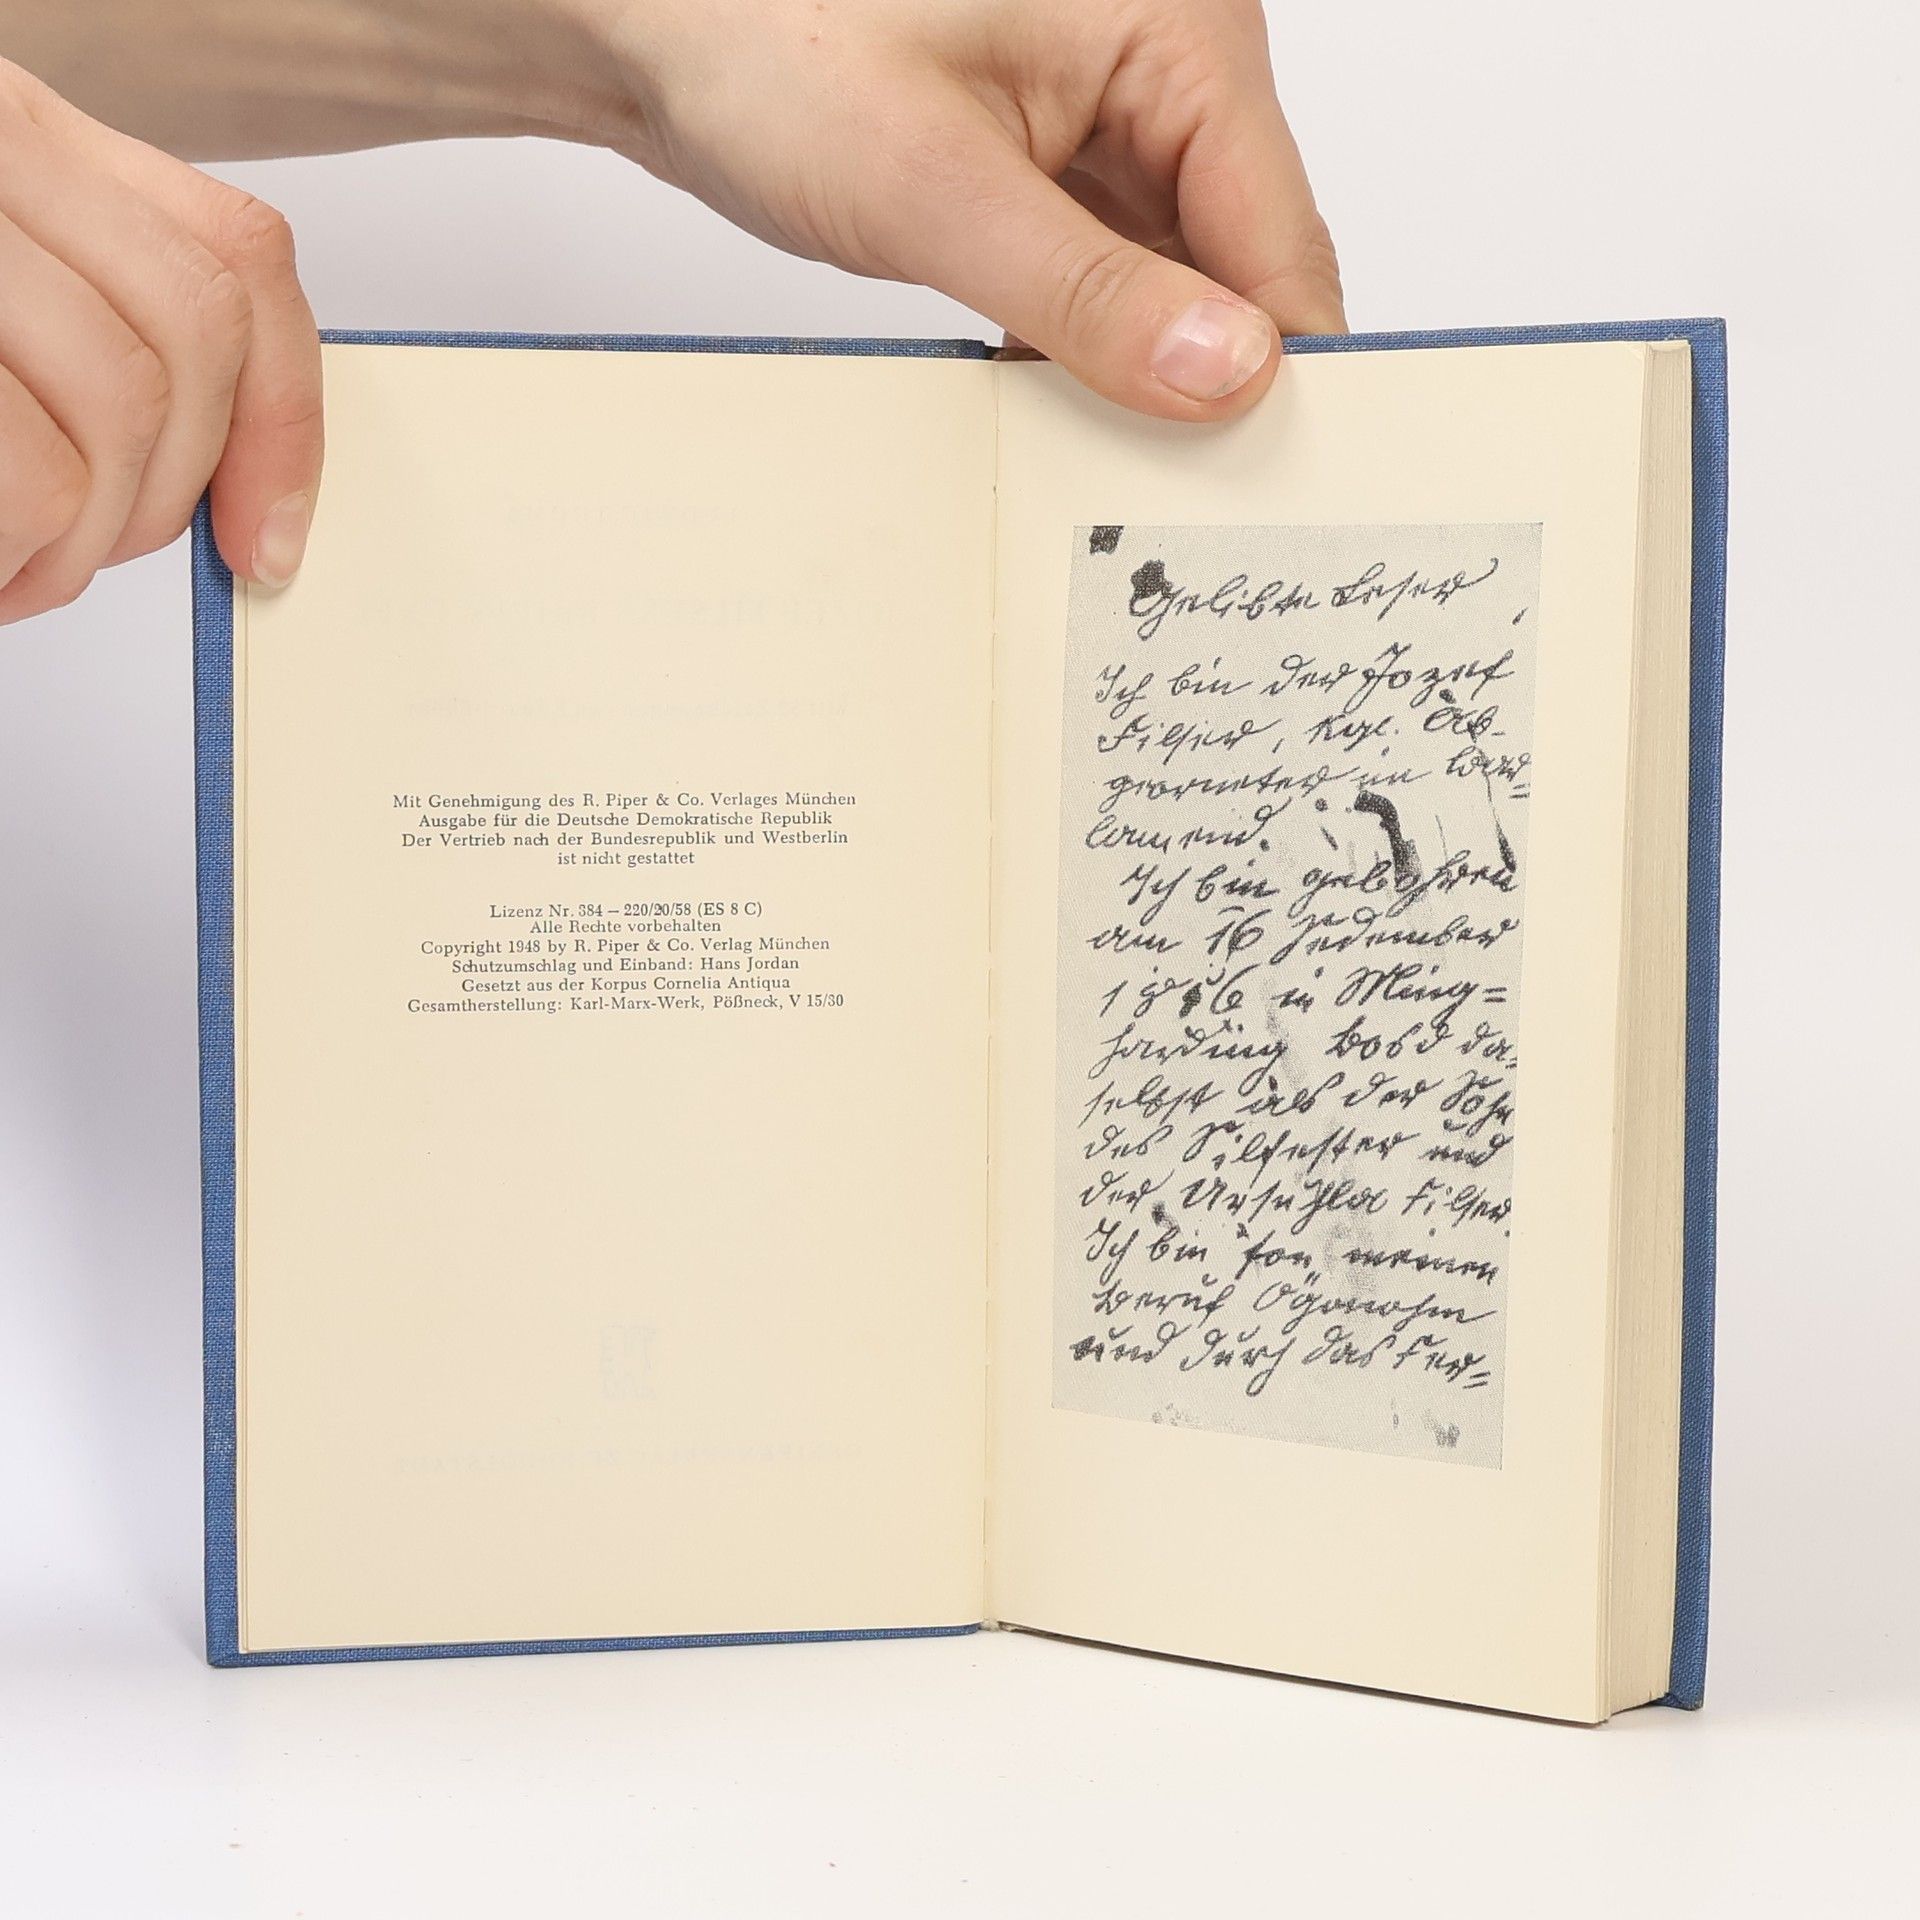 Mit Genehmigung des R. Piper & Co. Verlages München
Ausgabe für die Deutsche Demokratische Republik
Der Vertrieb nach der Bundesrepublik und Westberlin
ist nicht gestattet
Lizenz Nr. 384 – 220/20/58 (ES 8 C)
Alle Rechte vorbehalten
Copyright 1948 by R. Piper & Co. Verlag München
Schutzumschlag und Einband: Hans Jordan
Gesetzt aus der Korpus Cornelia Antiqua
Gesamtherstellung: Karl-Marx-Werk, Pößneck, V 15/30
Gelibte Leser,
Ich bin der Jozef
Filser, kgl. Ab-
georneter im Bar=
lamend.
Ich bin gebohren
am 16 Zedember
in Ming=
harding Bosd da=
selbst als der Sohn
des Silfester und
der Ursuhla Filser.
Ich bin fon meinen
Beruf Ögonohm
und durch das Fer=